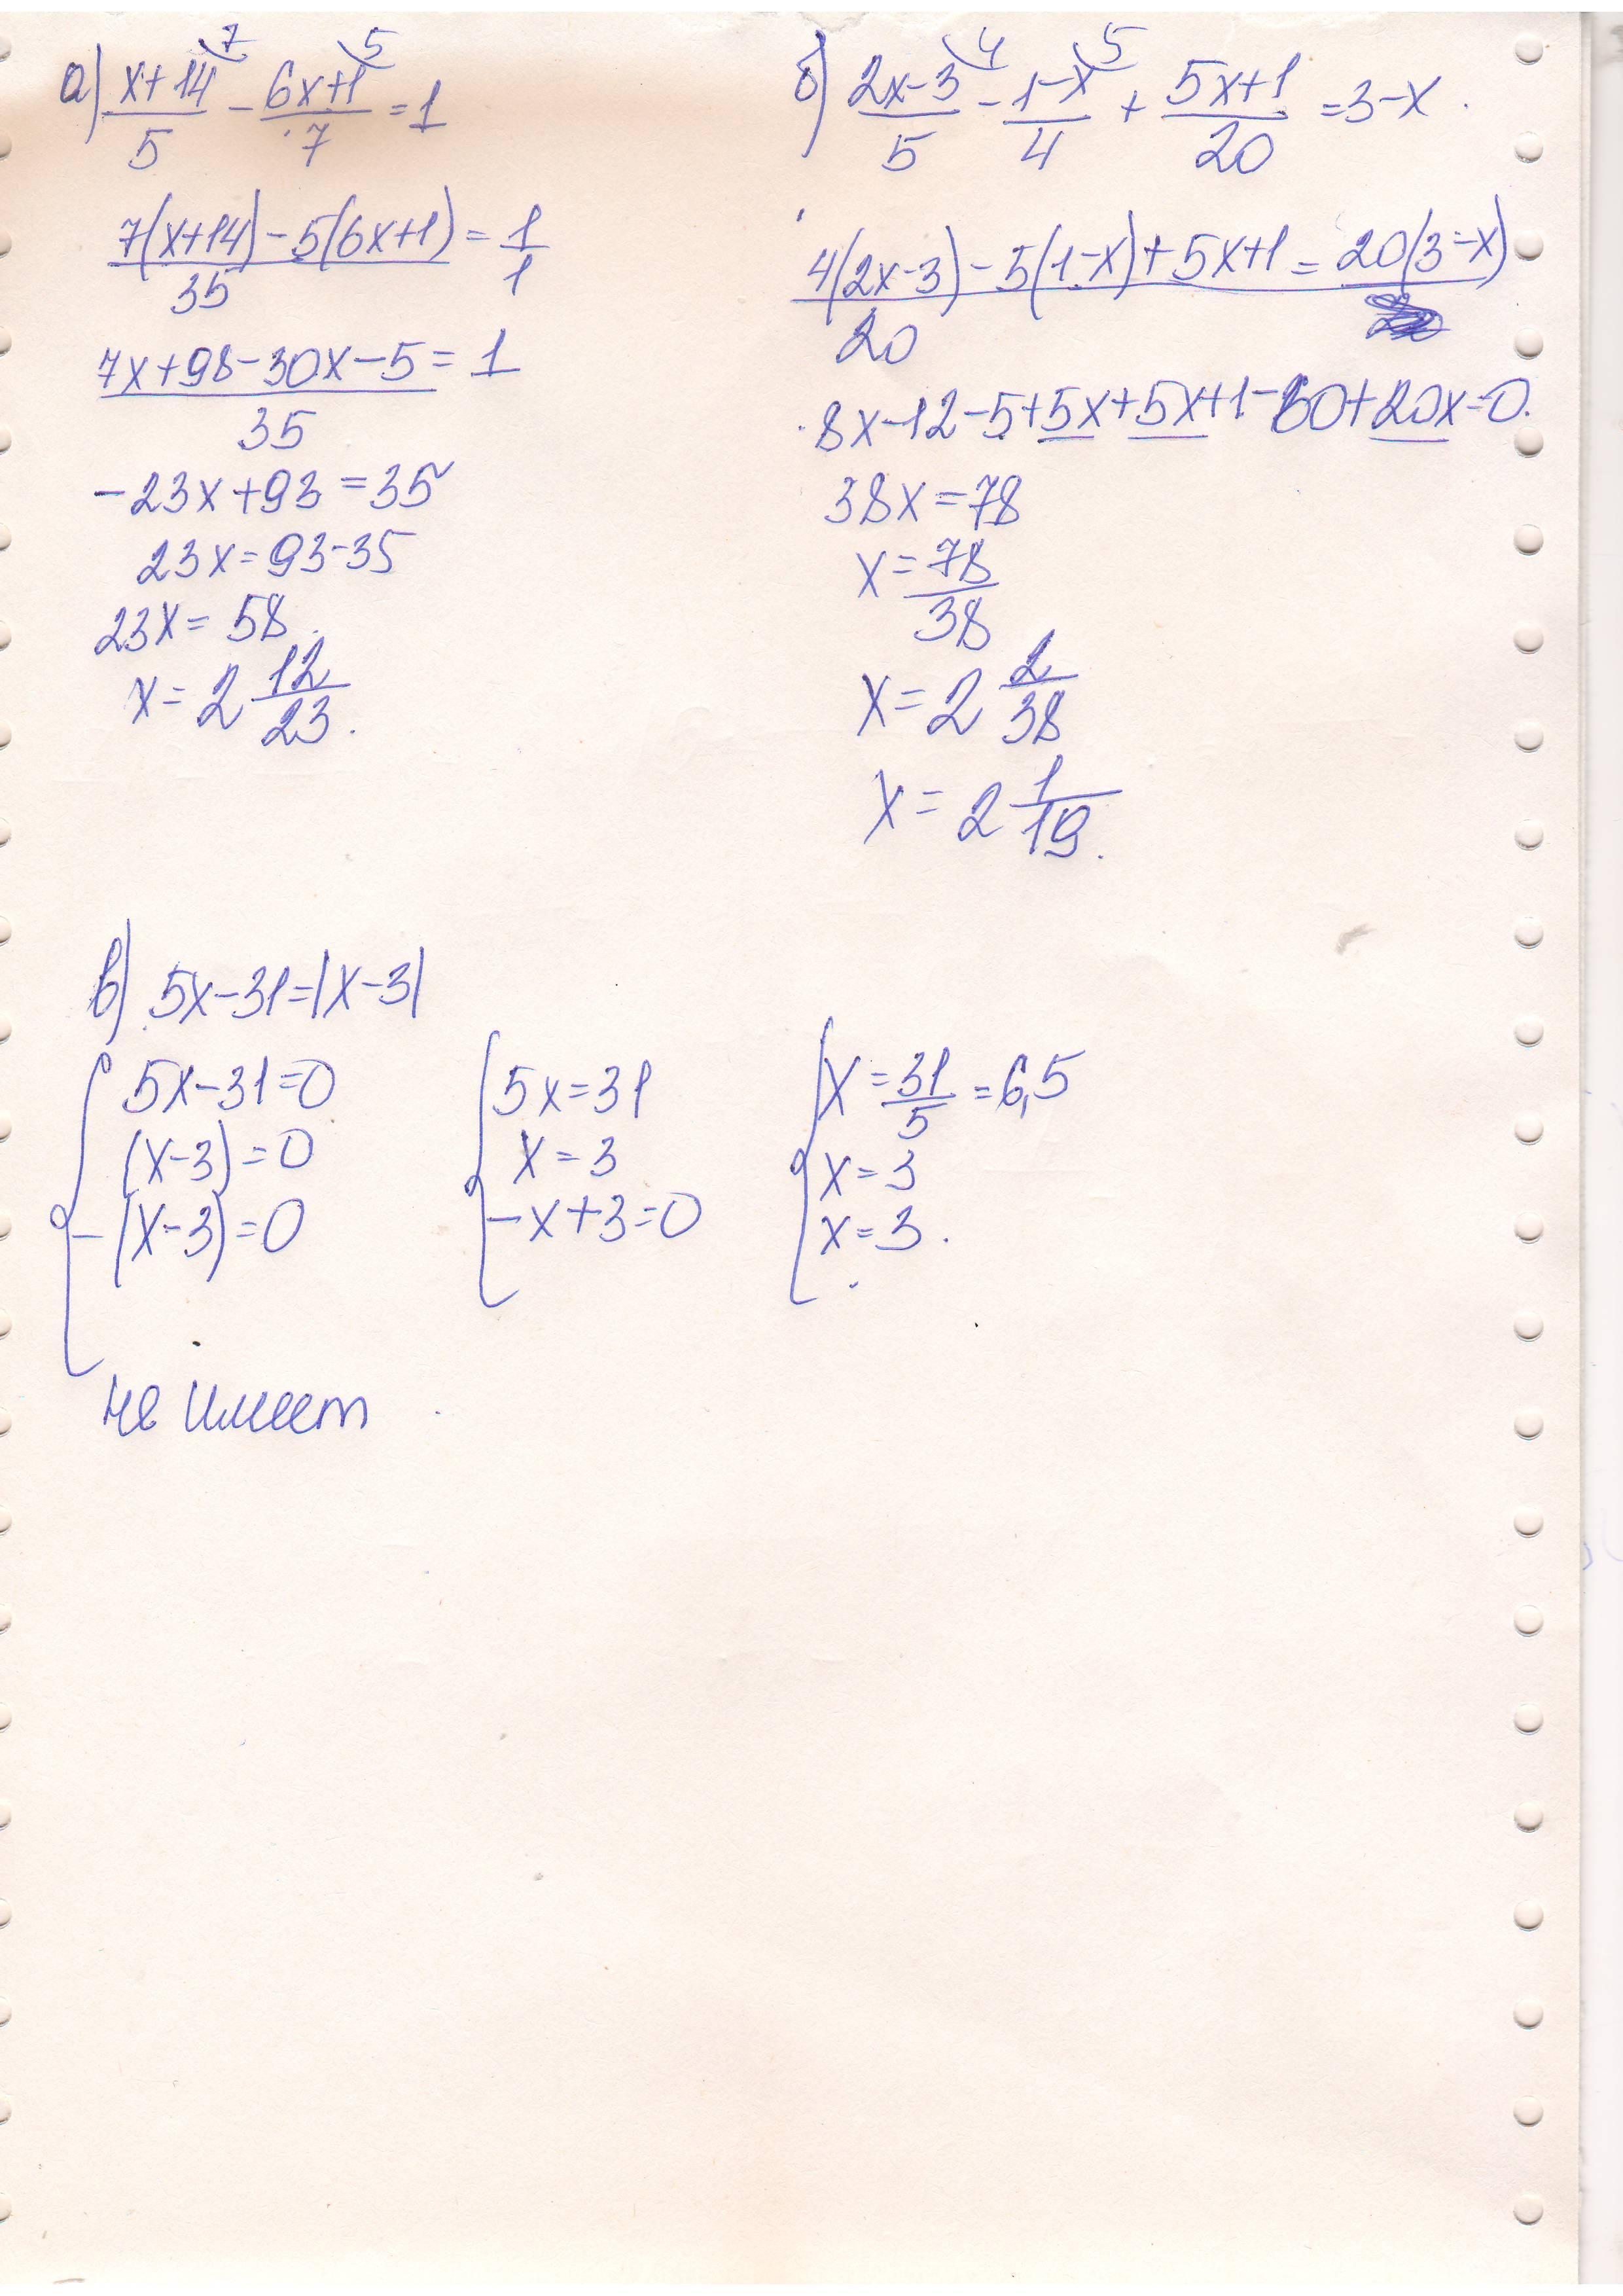 а) (x+14)/5 ⁷ - (6x+1)/7 ⁵ = 1
(7(x+14) - 5(6x+1))/35 = 1/1
(7x+98-30x-5)/35 = 1
-23x+93=35
23x=93-35
23x=58.
x=2 12/23.
б) (2x-3)/5 ⁴ - (1-x)/4 ⁵ + (5x+1)/20 = 3-x.
(4(2x-3) - 5(1-x) + 5x+1 = 20(3-x))/20
8x-12-5+5x+5x+1-60+20x=0.
38x=78
x=78/38
x=2 2/38
x=2 1/19.
в) 5x-31=|x-3|
{ 5x-31=0
(x-3)=0
-(x-3)=0
{ 5x=31
x=3
-x+3=0
{ x=31/5=6,5
x=3
x=3.
не имеет